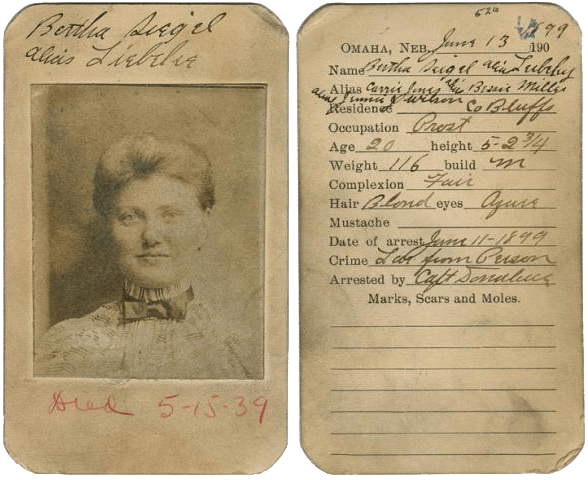 Bertha Siegel
alias Liebelie
Died 5-15-39
OMAHA, NEB. June 13 1899 190
Name Bertha Seigel alias
Alias Carrie Jones alias Bessie Miller
alias Jennie Wilson
Residence Co Bluffs
Occupation Prost
Age 20 height 5-2 3/4
Weight 116 build m
Complexion Fair
Hair Blond eyes Azure
Mustache
Date of arrest June 11-1899
Crime Lar from Person
Arrested by Capt Donahue
Marks, Scars and Moles.